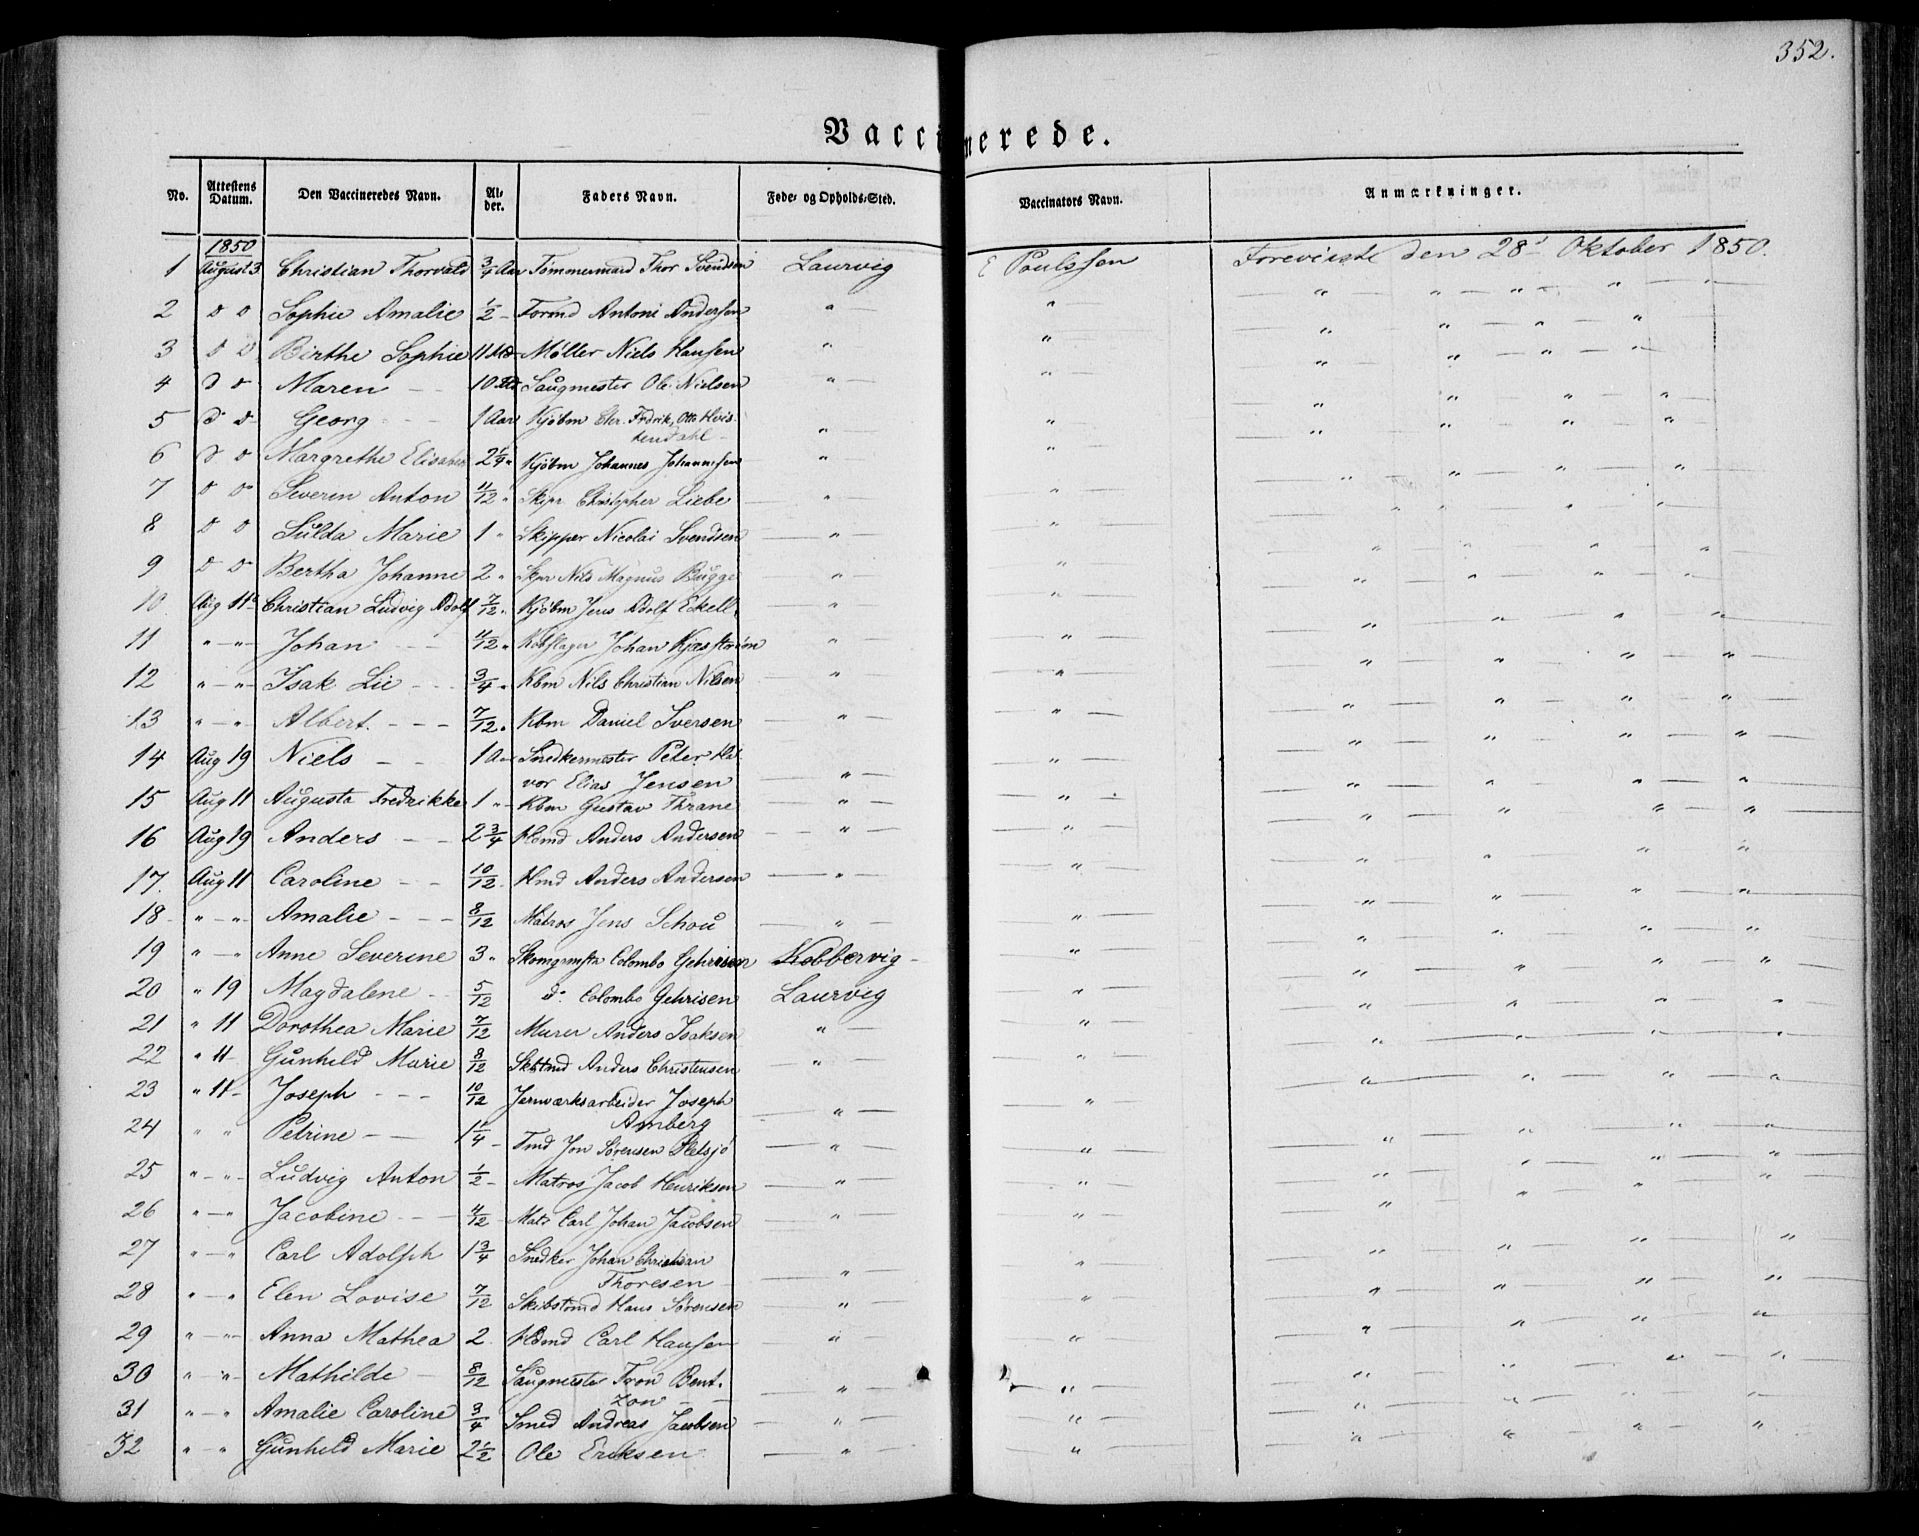 352.
Vaccinerede.
No. Attestens Datum. Den Vaccineredes Navn. Alder. Faders Navn. Føde- og Opholds-Sted. Vaccinators Navn. Anmærkninger.
1850
1 August 3 Christian Thorvald 3/4 Aar Tømmermand Thor Svendsen Laurvig E Poulssen Foreviiste den 28d Oktober 1850.
2 D D Sophie Amalie 1/2 - Formd Antoni Andersen " — " " — " — " — " — "
3 D D Birthe Sophie 11 Md Møller Niels Hansen " — " " — " — " — "
4 D D Maren — 10 Md Saugmester Ole Nielsen " — " " — " — " — "
5 D D Georg — 1 Aar Kjøbm Chr. Fredrik Otto Hvis-
tendahl — " — " " — " — " — "
6 D D Margrethe Elisabeth 2 1/4 " Kjøbm Johannes Johannesen " — " " — " — " — "
7 D D Severin Anton 11/12 " Skipr Christopher Liebe " — " " — " — " — "
8 D D Hulda Marie 1 " Skipper Nicolai Svendsen " — " " — " — " — "
9 D D Bertha Johanne 2 " Skpr Nils Magnus Bugge " — " " — " — " — "
10 Aug 11te Christian Ludvig Adolf 7/12 " Kjøbm Jens Adolf Eckell " — " " — " — " — "
11 " — " Johan — 11/12 " Johan " — " " — " — " — "
12 " — " Isak Lie — 3/4 " Kbm Nils Christian Nilsen " — " " — " — " — "
13 " — " Albert. — 7/12 " Kbm Daniel Iversen " — " " — " — " — "
14 Aug 19 Niels — 1 Aar Snedkermester Peter Hal-
vor Elias Jensen " — " " — " — " — "
15 Aug 11 Augusta Fredrikke 1 " Kbm Gustav Thrane " — " " — " — " — "
16 Aug 19 Anders — 2 3/4 Hbmd Anders Andersen " — " " — " — " — "
17. Aug 11 Caroline — 10/12 Hmd Anders Andersen " — " " — " — " — "
18 " — " Amalie — 8/12 Matros Jens Schou " — " " — " — " — "
19 " — " Anne Severine 3 " Colombo Gehrisen Kobbervig " " — " — " — "
20 " 19 Magdalene — 5/12 d: Colombo Gehrisen Laurvig " " — " — " — "
21 " 11 Dorothea Marie 7/12 Murer Anders Isaksen " — " " — " — " — "
22 " 11 Gunhild Marie 8/12 Skbtmd Anders Christensen " — " " — " — " — "
23 " 11 Joseph — 10/12 Jernværksarbeider Joseph
Amberg " — " " — " — " — "
24 " " Petrine — 1 1/4 Tmd Jon Sørensen Sletsjø " — " " — " — " — "
25 " — " Ludvig Anton 1/2 Matros Jacob Henriksen " — " " — " — " — "
26 " — " Jacobine — 4/12 Mats Carl Johan Jacobsen " — " " — " — " — "
27 " — " Carl Adolph 1 3/4 Snedker Johan Christian
Thoresen — " — " " — " — " — "
28 " — " Elen Lovise 7/12 Skibstmd Hans Sørensen " — " " — " — " — "
29 " — " Anna Mathea 2. Hbmd Carl Hansen " — " " — " — " — "
30 " — " Mathilde — 8/12 Saugmester Tron Bent-
zon — " — " " — " — " — "
31 " — " Amalie Caroline 3/4 Smed Andreas Jacobsen " — " " — " — " — "
32 " — " Gunhild Marie 2 1/2 Ole Eriksen " — " " — " — " — "